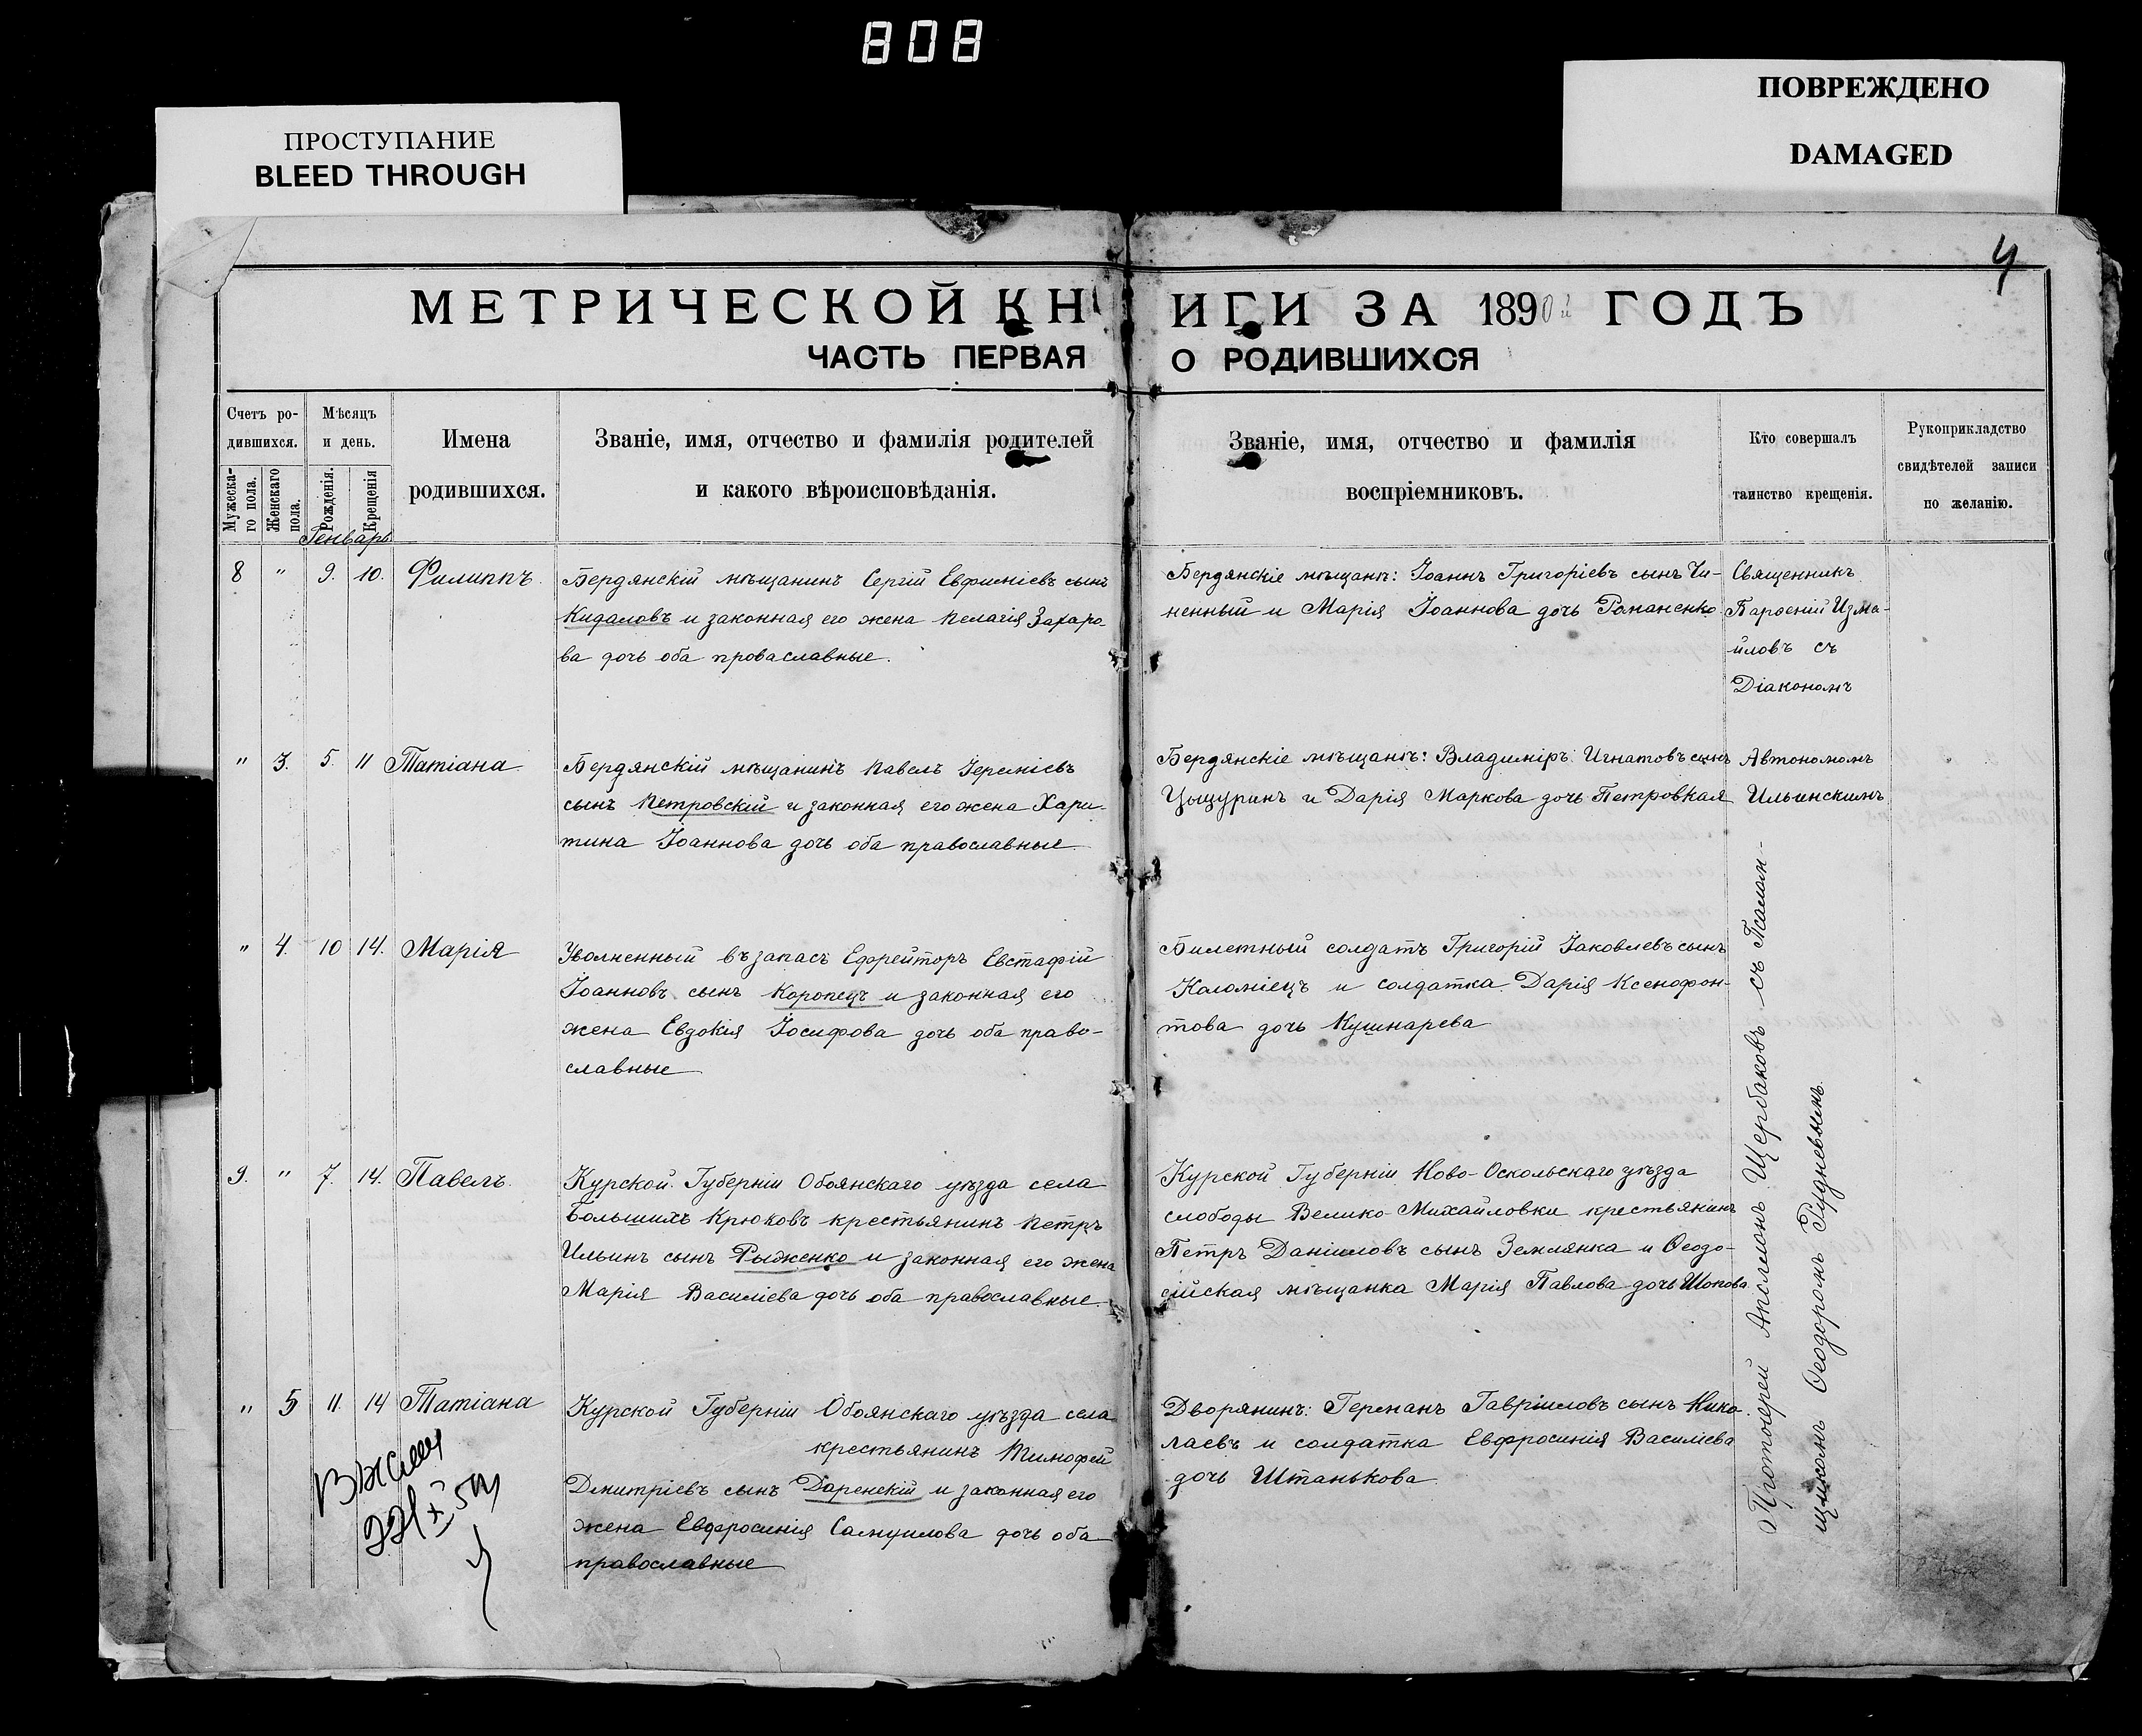 808
ПРОСТУПАНИЕ
BLEED THROUGH
ПОВРЕЖДЕНО
DAMAGED
МЕТРИЧЕСКОЙ КН
ИГИ ЗА 1890й ГОДЪ
ЧАСТЬ ПЕРВАЯ
О РОДИВШИХСЯ
Счетъ ро-
дившихся.
Мужеска-
го пола.
Женскаго
пола.
Мѣсяцъ
и день.
Рожденія.
Крещенія
Имена
родившихся.
Званіе, имя, отчество и фамилія родителей
и какого вѣроисповѣданія.
Званіе, имя, отчество и фамилія
воспріемниковъ.
Кто совершалъ
таинство крещенія.
Рукоприкладство
свидѣтелей записи
по желанію.
Генварь
8 " 9. 10. Филиппъ.
Бердянскій мѣщанинъ Сергій Евфиміевъ сынъ
Кидаловъ и законная его жена Пелагія Захаро-
ва дочь оба проваславные.
Бердянскіе мѣщанѣ: Іоаннъ Григоріевъ сынъ Чи-
ненный и Марія Іоаннова дочь Романенко
Священникъ
Парѳеній Изма-
йловъ съ
Діакономъ
" 3. 5. 11 Татіана
Бердянскій мѣщанинъ Павелъ Іереміевъ
сынъ Петровскій и законная его жена Хари-
тина Іоаннова дочь оба православные
Бердянскіе мѣщанѣ: Владиміръ Игнатовъ сынъ
Цыцуринъ и Дарія Маркова дочь Петровкая
Автономомъ
Ильинскимъ
" 4. 10 14. Марія
Уволненный въ запасъ Ефрейторъ Евстафій
Іоанновъ сынъ Коропецъ и законная его
жена Евдокія Іосифова дочь оба право-
славные
Билетный солдатъ Григорій Іаковлевъ сынъ
Коломіецъ и солдатка Дарія Ксенофон-
това дочь Кушнарева
9. " 7. 14. Павелъ.
Курской Губерніи Обоянскаго уѣзда села
Большихъ Крюковъ крестьянинъ Петръ
Ильинъ сынъ Рыженко и законная его жена
Марія Василіева дочь оба православные.
Курской Губерніи Ново-Оскольскаго уѣзда
слободы Велико-Михайловки крестьянинъ
Петръ Даніиловъ сынъ Землянка и Ѳеодо-
сійская мѣщанка Марія Павлова дочь Шопова
" 5 11. 14 Татіана
Курской Губерніи Обоянскаго уѣзда села
крестьянинъ Тимофей
Дмитріевъ сынъ Даренскій и законная его
жена Евфросинія Самуилова дочь оба
православные
Дворянинъ: Германъ Гавріиловъ сынъ Нико-
лаевъ и солдатка Евфросинія Василіева
дочь Штанькова
Протоіерей Апсломонъ Щербаковъ съ Псалом-
щикомъ Ѳеодоромъ Рудневымъ.